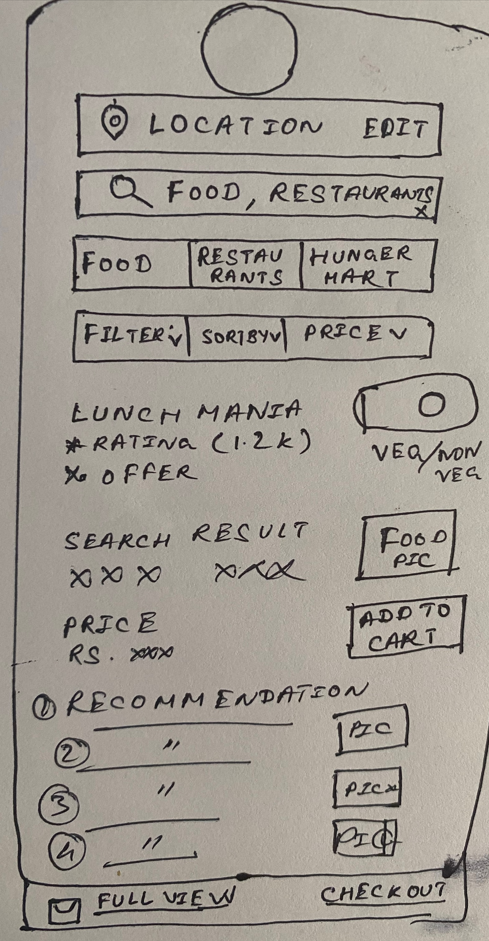 LOCATION EDIT
FOOD, RESTAURANTS x
FOOD RESTAU RANTS HUNGER MART
FILTER SORTBY PRICE
LUNCH MANIA
* RATING (1.2K)
% OFFER
VEG/NON VEG
SEARCH RESULT
xxx xxx
FOOD PIC
PRICE
RS. xxx
ADD TO CART
① RECOMMENDATION
② " PIC
③ " PIC
④ " PIC
FULL VIEW CHECKOUT